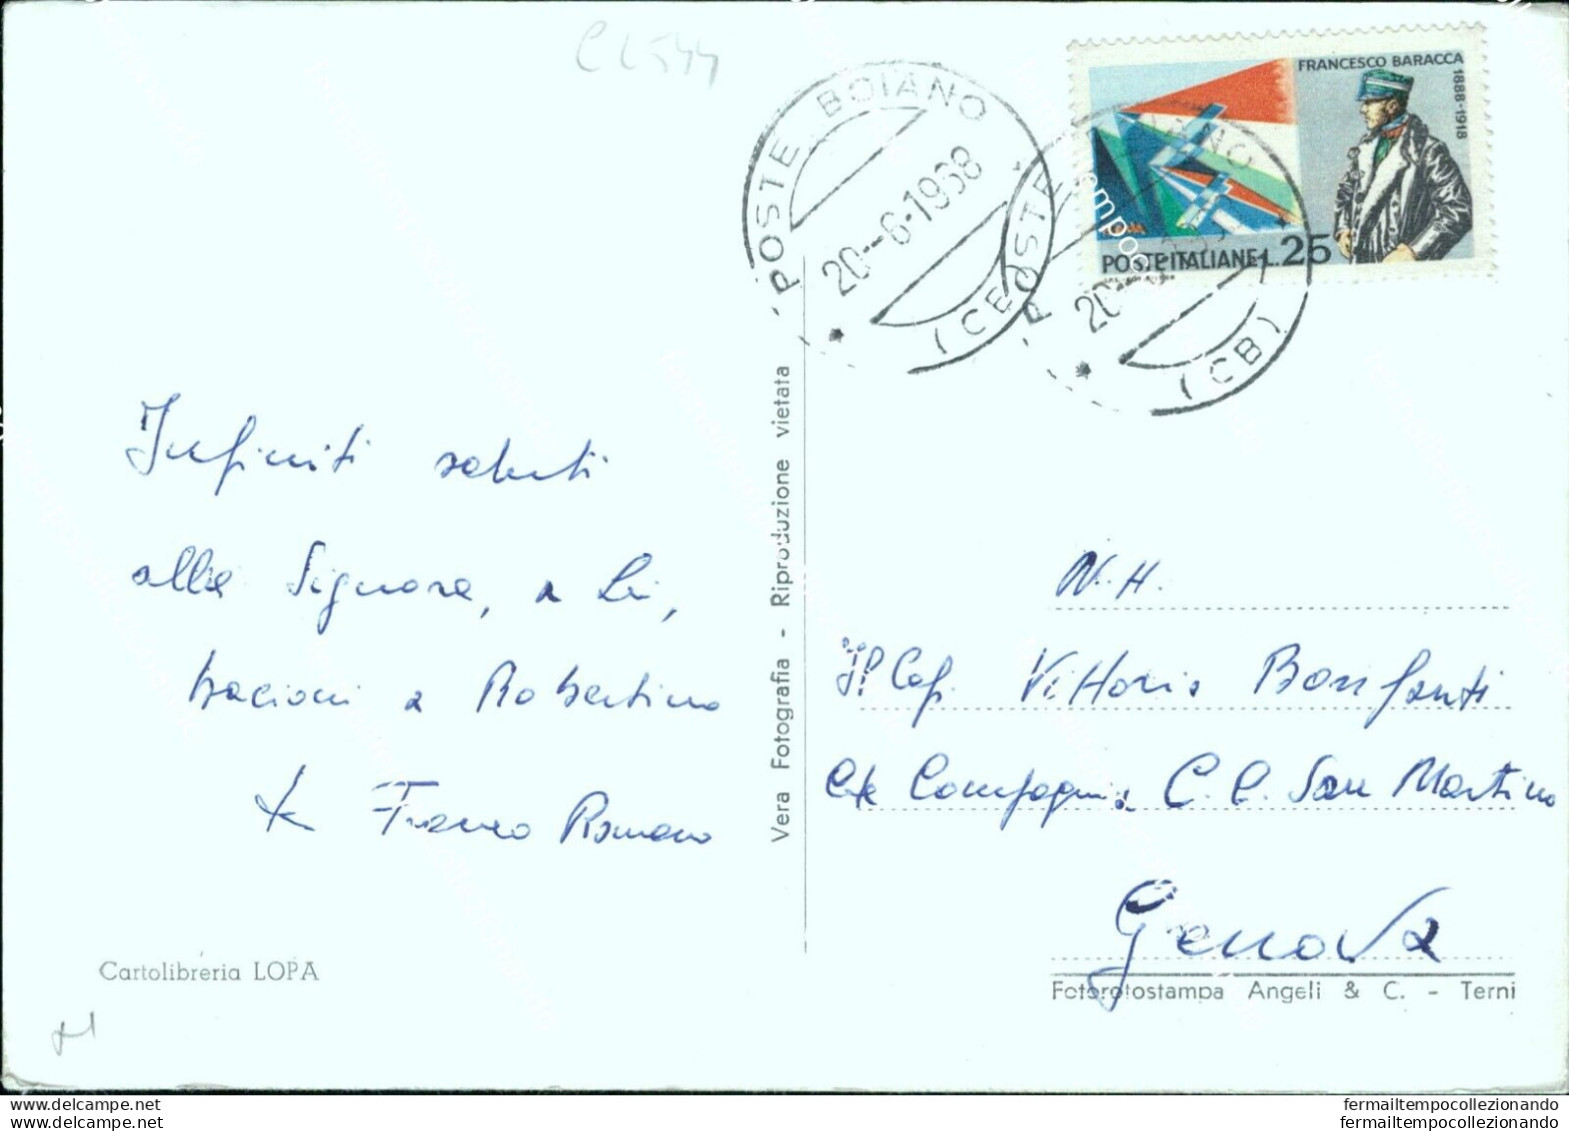 CL544
FRANCESCO BARACCA
1888-1918
POSTE ITALIANE L.25
POSTE BOIANO
20--6-1968
(CB)
POSTE
20
(CB)
Infiniti saluti
alla Signora, a Lei,
bacioni a Robertino
Franco Romano
Vera Fotografia - Riproduzione vietata
N.H.
Il Cap. Vittorio Bonfanti
Cte Compagnia C.C. San Martino
Genova
Cartolibreria LOPA
Fotorotostampa Angeli & C. - Terni
www.delcampe.net
www.delcampe.net
fermailtempocollezionando
fermailtempocollezionando